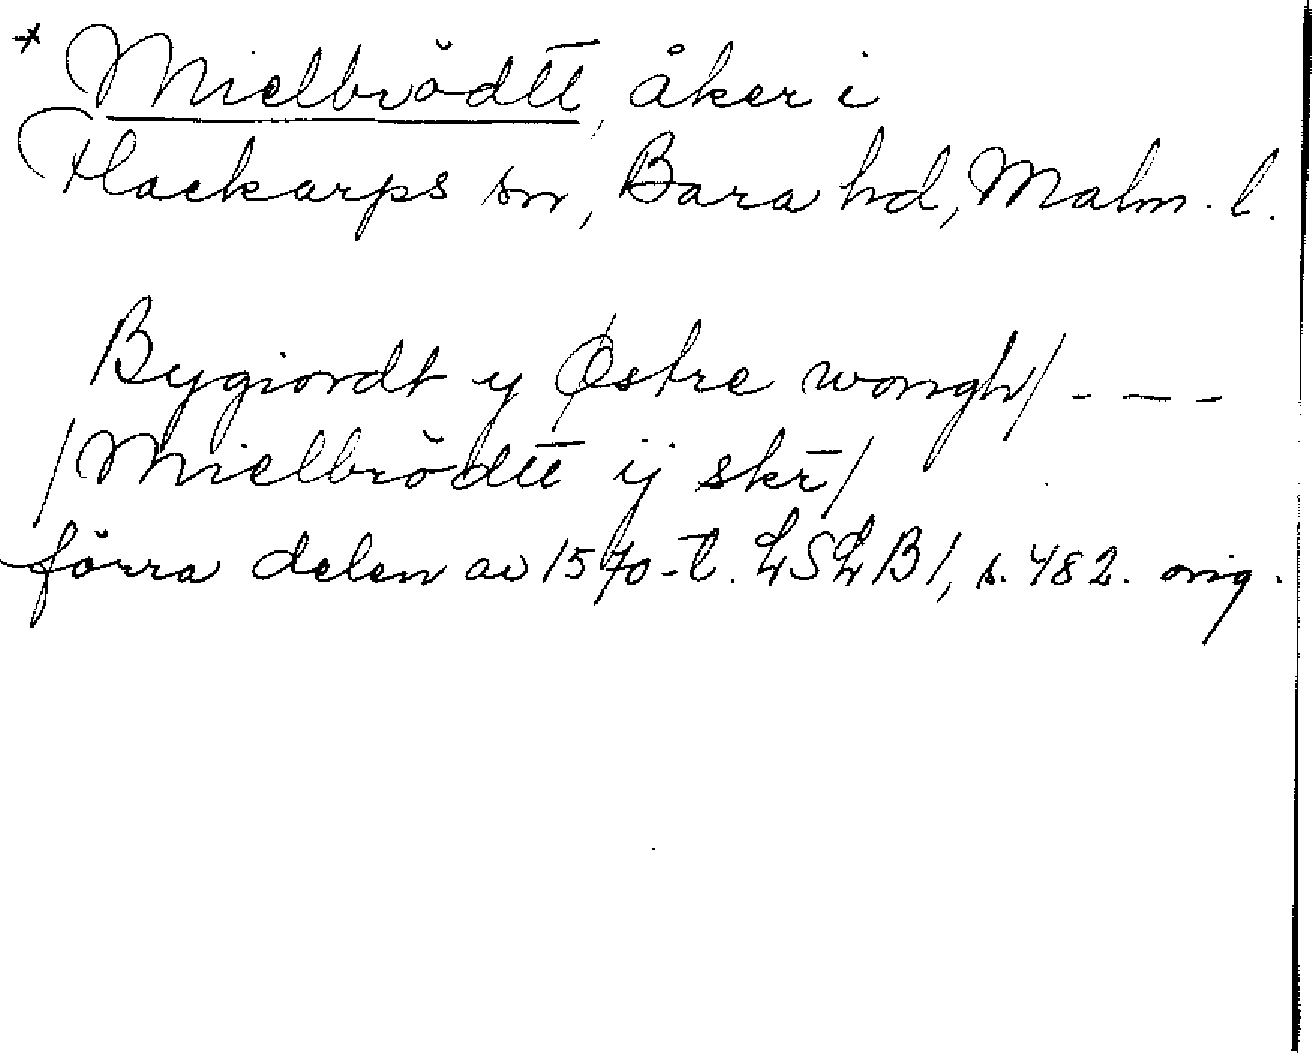 * Mielbrödtt, åker i
Flackarps sn, Bara hd, Malm. l.
Bygiordt y Østre wongh/ - - -
/Mielbrödtt ij skr/
förra delen av 1570-t. LSLB1, s. 482. orig.